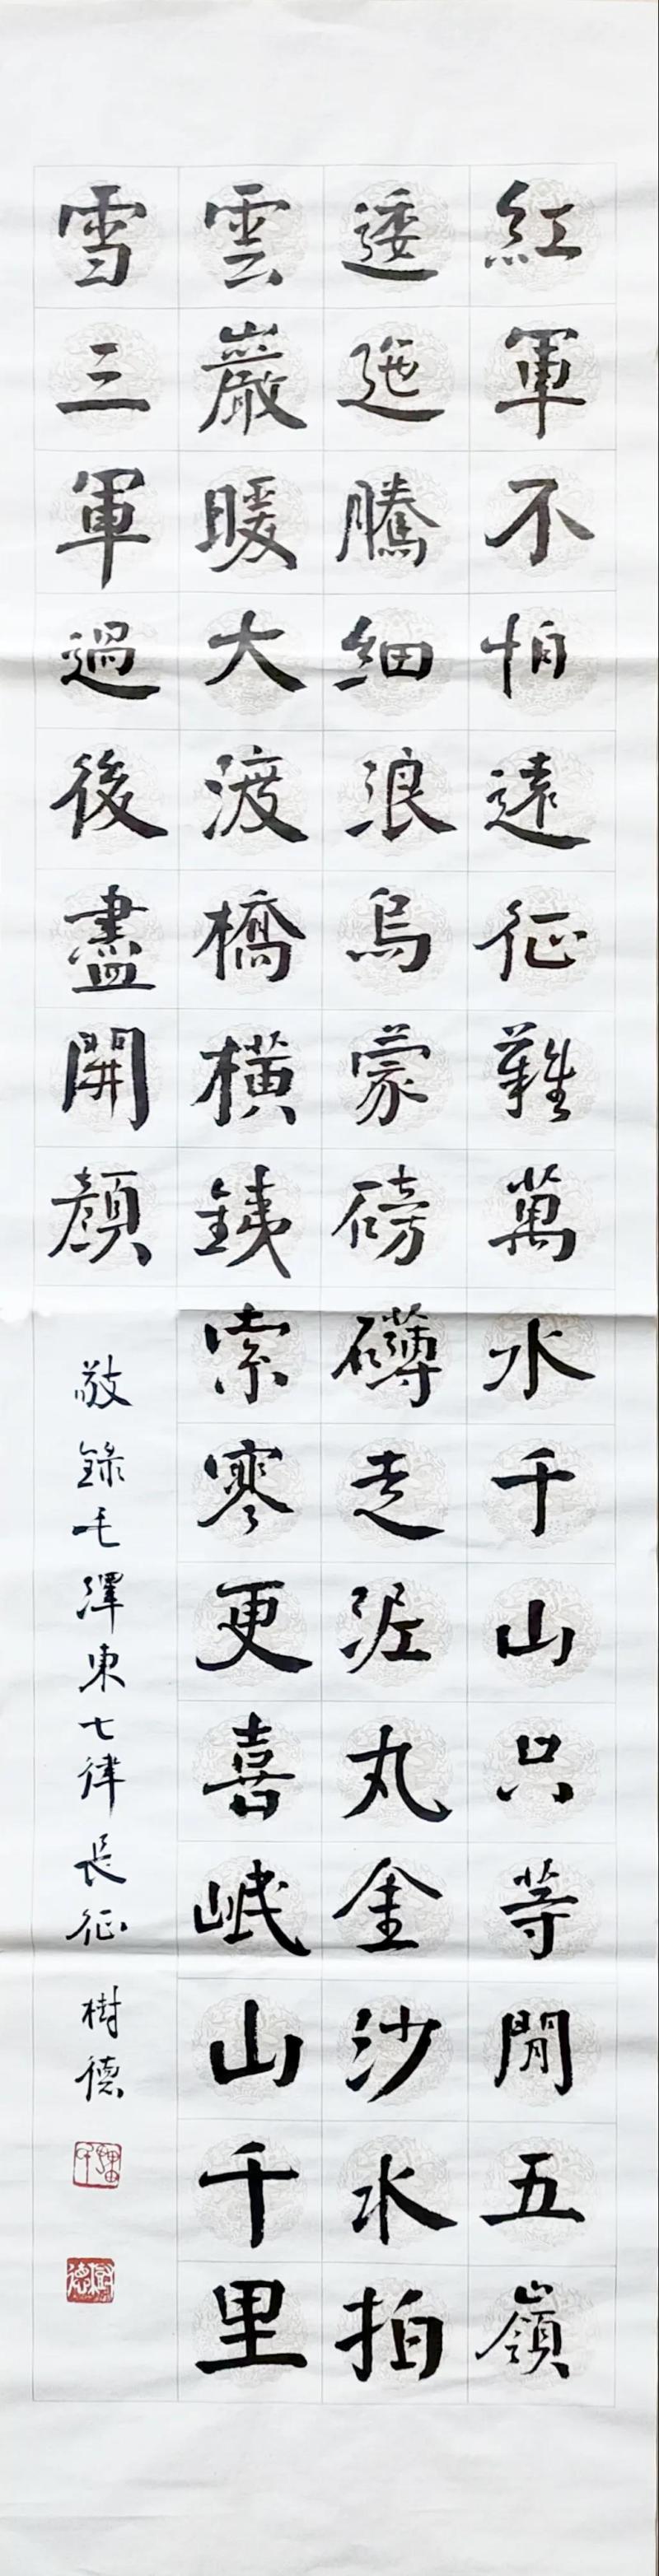 紅軍不怕遠征難萬水千山只等閒五嶺
逶迤騰細浪烏蒙磅礴走泥丸金沙水拍
雲巖暖大渡橋橫銕索寒更喜岷山千里
雪三軍過後盡開顏
敬錄毛澤東七律長征 樹德
樹德